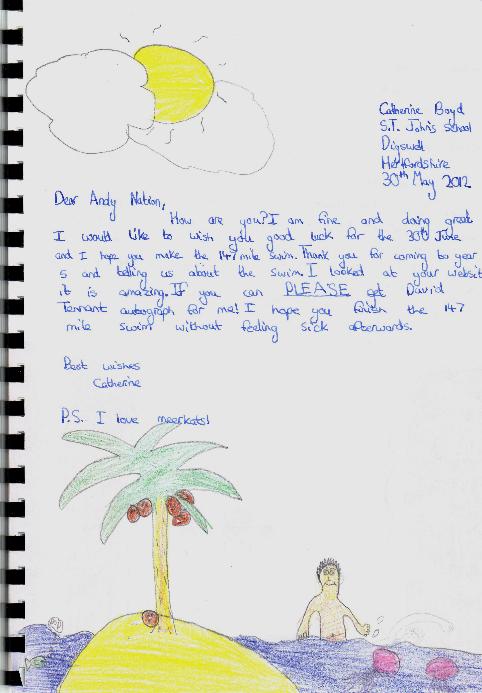 Catherine Boyd
S.T. John's School
Digswell
Hertfordshire
30th May 2012
Dear Andy Nation,
How are you? I am fine and doing great
I would like to wish you good luck for the 30th June
and I hope you make the 147 mile swim. Thank you for coming to year
5 and telling us about the swim. I looked at your websit
it is amazing. If you can PLEASE get David
Tennant autograph for me! I hope you finish the 147
mile swim without feeling sick afterwards.
Best wishes
Catherine
P.S. I love meerkats!